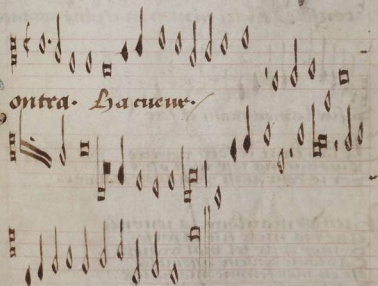 ontra. Ha cueur.